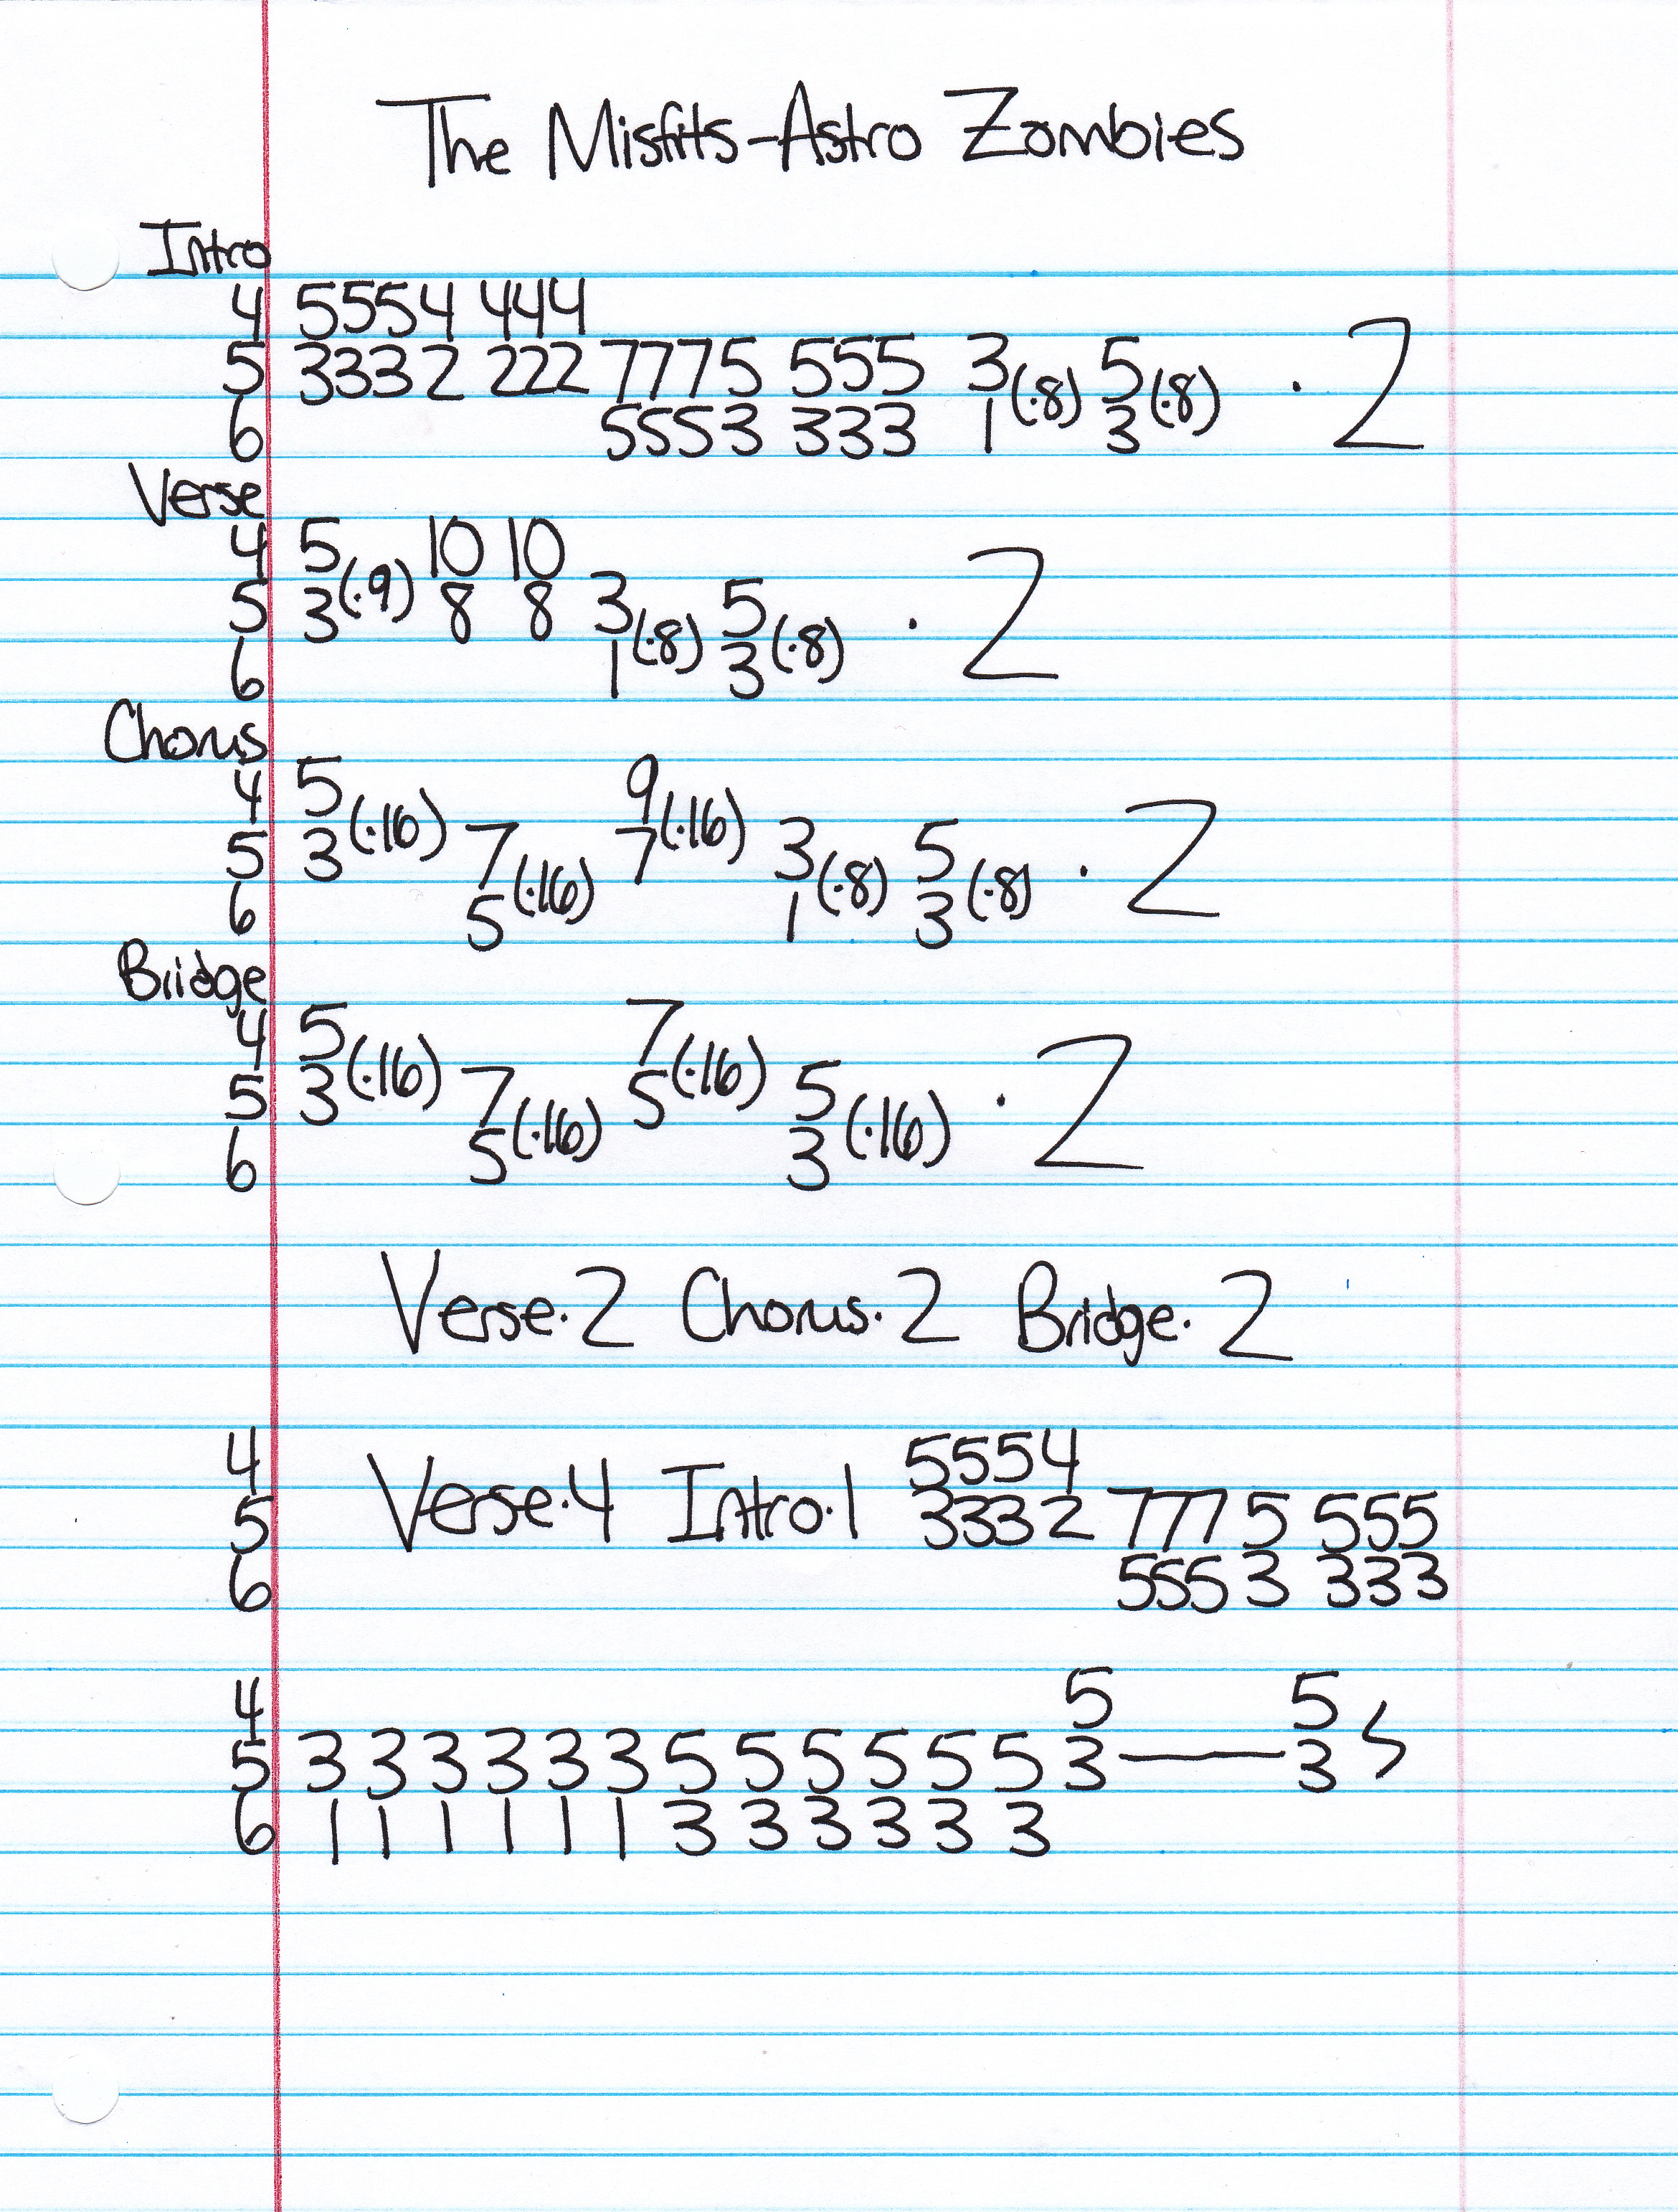 The Misfits-Astro Zombies
Intro
4 5554 444
5 3332 222 7775 555 3(·8) 5(·8) · 2
6 5553 333 1 3
Verse
4 5 10 10
5 3(·9) 8 8 3(·8) 5(·8) · 2
6 1 3
Chorus
4 5 9
5 3(·16) 7(·16) 7(·16) 3(·8) 5(·8) · 2
6 5 1 3
Bridge
4 5 7
5 3(·16) 7(·16) 5(·16) 5(·16) · 2
6 5 3
Verse·2 Chorus·2 Bridge·2
4 5554
5 Verse·4 Intro·1 3332 7775 555
6 5553 333
4 5 5
5 3 3 3 3 3 3 5 5 5 5 5 5 3——3
6 1 1 1 1 1 1 3 3 3 3 3 3